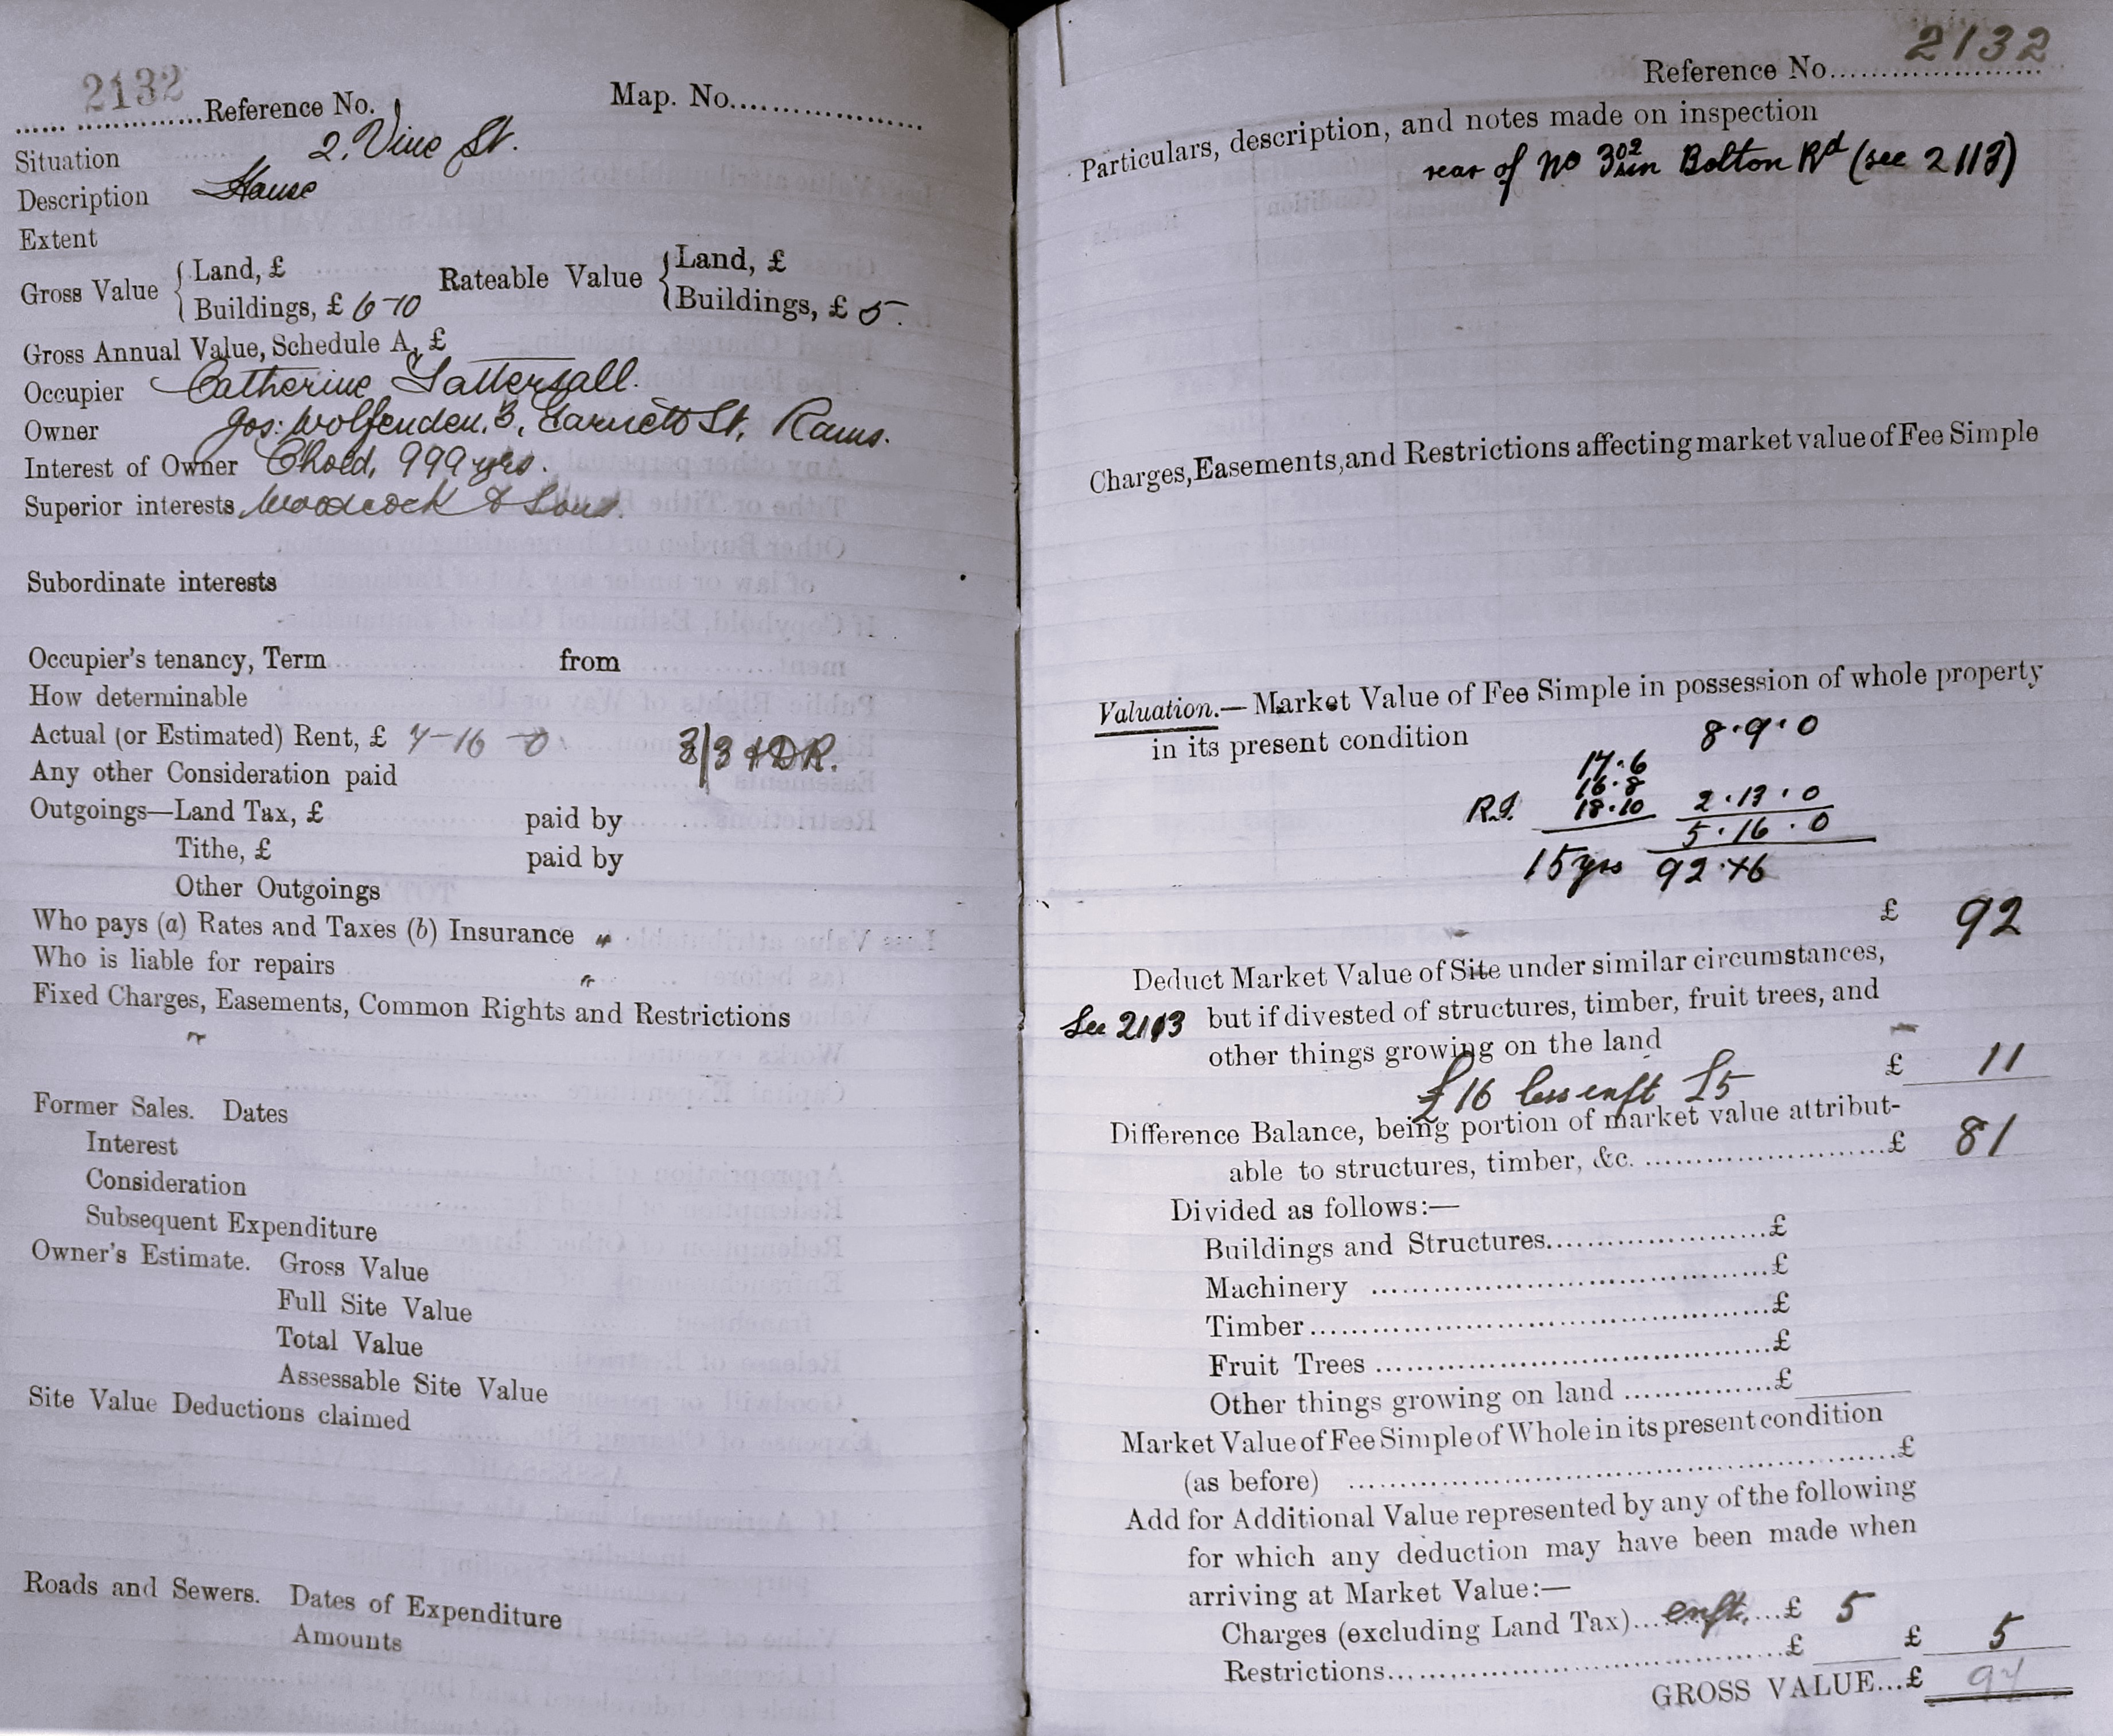 2132 Reference No. Map. No.
Situation 2, Vine St.
Description House
Extent
Gross Value { Land, £ Rateable Value { Land, £
Buildings, £ 6-10 Buildings, £ 5.
Gross Annual Value, Schedule A, £
Occupier Catherine Tattersall.
Owner Jos: Wolfenden, 3, Garnett St, Rams.
Interest of Owner Chold, 999 yrs.
Superior interests Woodcock & Sons.
Subordinate interests
Occupier's tenancy, Term from
How determinable
Actual (or Estimated) Rent, £ 7-16-0 3/3 + DR.
Any other Consideration paid
Outgoings—Land Tax, £ paid by
Tithe, £ paid by
Other Outgoings
Who pays (a) Rates and Taxes (b) Insurance "
Who is liable for repairs "
Fixed Charges, Easements, Common Rights and Restrictions
Former Sales. Dates
Interest
Consideration
Subsequent Expenditure
Owner's Estimate. Gross Value
Full Site Value
Total Value
Assessable Site Value
Site Value Deductions claimed
Roads and Sewers. Dates of Expenditure
Amounts
Reference No. 2132
Particulars, description, and notes made on inspection
rear of No 302 in Bolton Rd (see 2113)
Charges, Easements, and Restrictions affecting market value of Fee Simple
Valuation.— Market Value of Fee Simple in possession of whole property
in its present condition 8.9.0
17.6
16.8
18.10 2.13.0
5.16.0
15 yrs 92.
£ 92
Deduct Market Value of Site under similar circumstances,
See 2113 but if divested of structures, timber, fruit trees, and
other things growing on the land £ 11
£16 less enft £5
Difference Balance, being portion of market value attribut-
able to structures, timber, &c. £ 81
Divided as follows:—
Buildings and Structures £
Machinery £
Timber £
Fruit Trees £
Other things growing on land £
Market Value of Fee Simple of Whole in its present condition
(as before) £
Add for Additional Value represented by any of the following
for which any deduction may have been made when
arriving at Market Value:—
Charges (excluding Land Tax) enft. £ 5
Restrictions £ £ 5
GROSS VALUE...£ 97